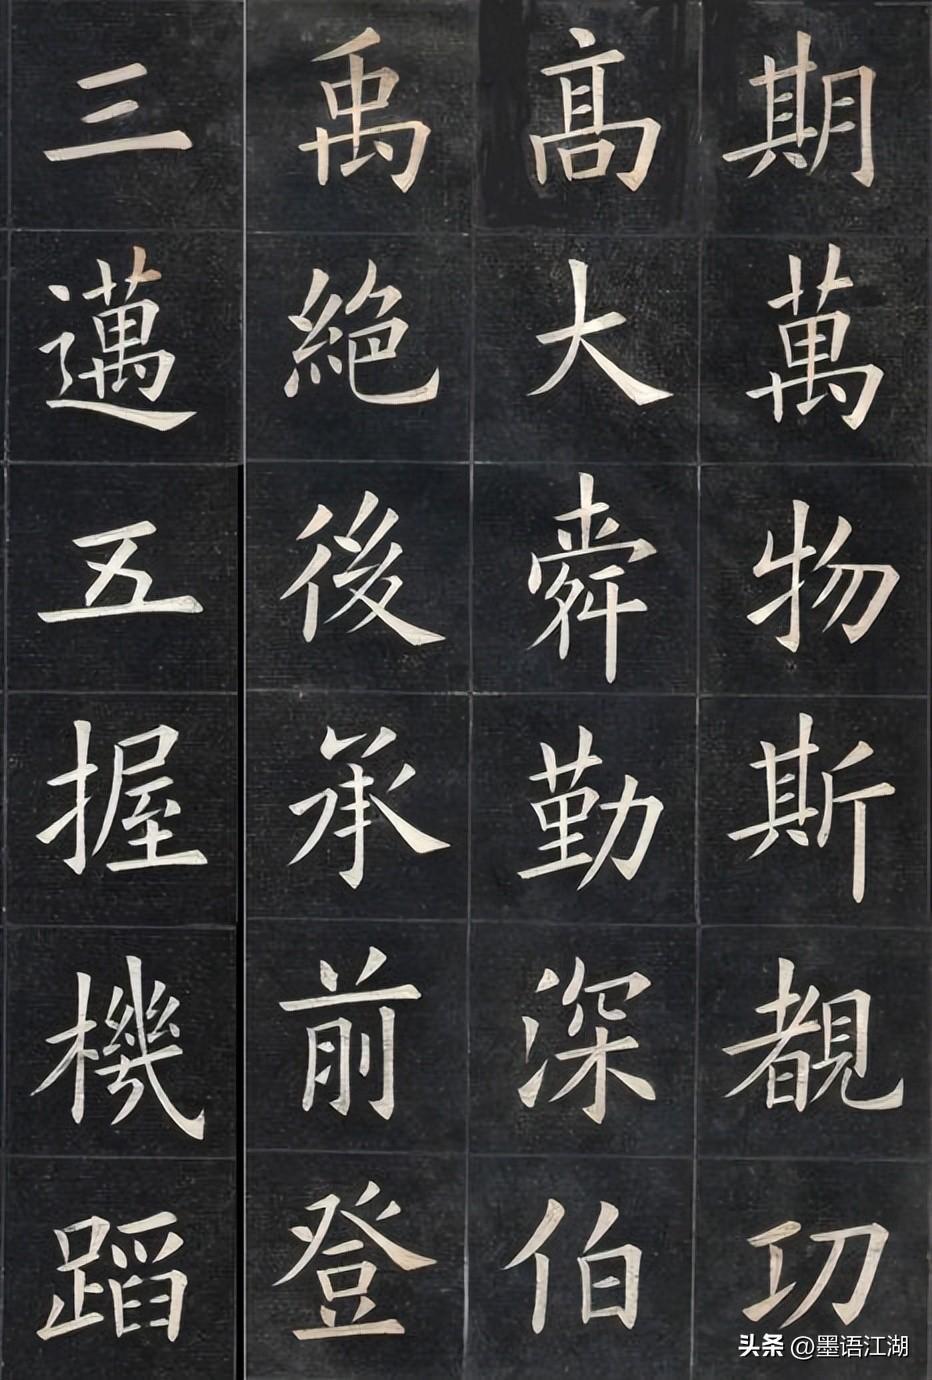 期萬物斯覩功
髙大舜勤深伯
禹絶後承前登
三邁五握機蹈
头条 @墨语江湖